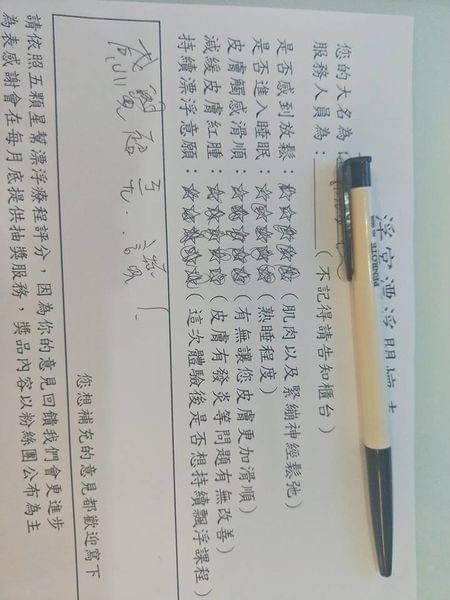 浮宮漂浮
您的大名為
服務人員為：（不記得請告知櫃台）
是否感到放鬆：☆☆☆☆☆（肌肉以及緊繃神經鬆弛）
是否進入睡眠：☆☆☆☆☆（熟睡程度）
皮膚觸感滑順：☆☆☆☆☆（有無讓您皮膚更加滑順）
減緩皮膚紅腫：☆☆☆☆☆（皮膚有發炎等問題有無改善）
持續漂浮意願：☆☆☆☆☆（這次體驗後是否想持續飄浮課程）
您想補充的意見都歡迎寫下
請依照五顆星幫漂浮療程評分，因為你的意見回饋我們會更進步
為表感謝會在每月底提供抽獎服務，獎品內容以粉絲團公布為主